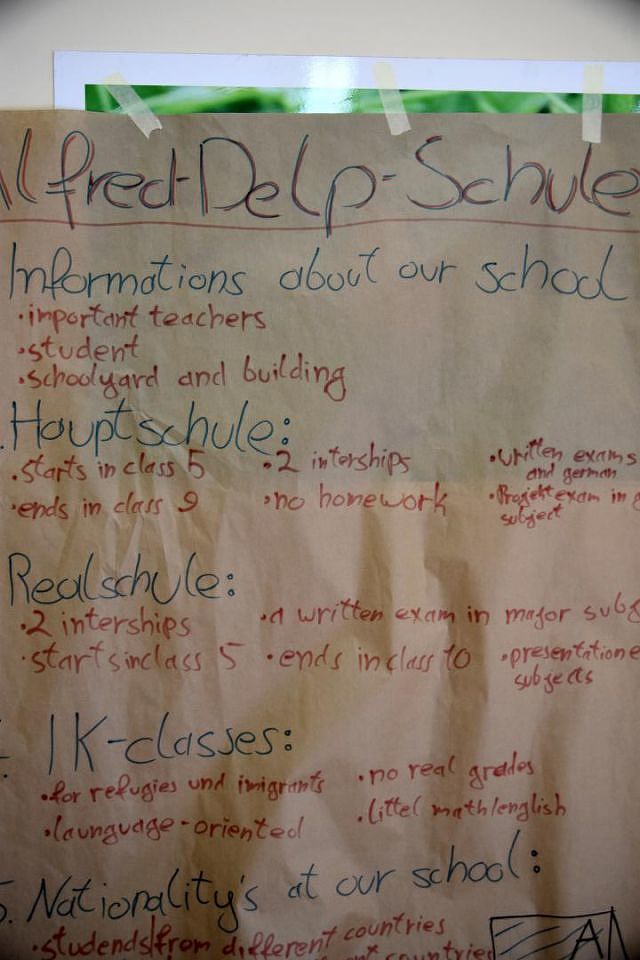 Alfred-Delp-Schule
Informations about our school
•important teachers
•student
•schoolyard and building
Hauptschule:
•starts in class 5
•ends in class 9
•2 interships
•no homework
•written exams
and german
•Projektexam in
subject
Realschule:
•2 interships
•a written exam in major subj
•starts in class 5 •ends in class 10
•presentation e
subjects
IK-classes:
•for refugies und imigrants
•launguage-oriented
•no real grades
•littel math/english
5. Nationality's at our school:
•studends from different countries
countries